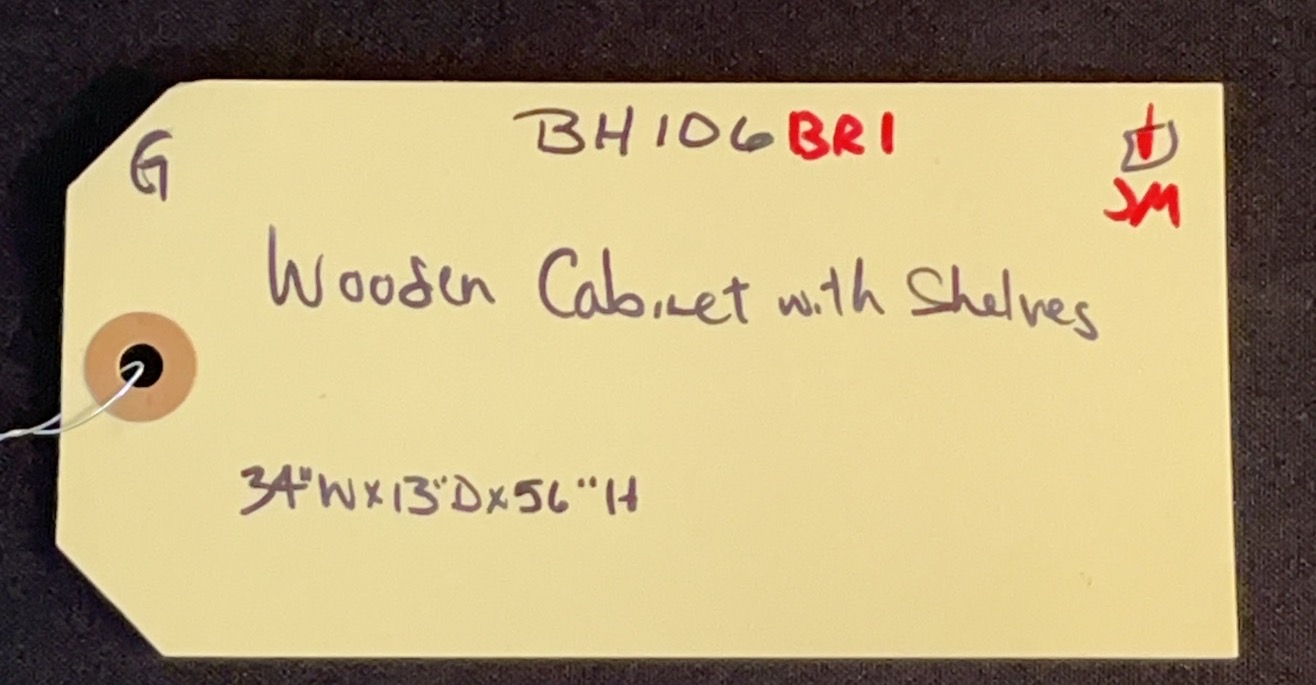 G
BH106 BR1
JM
Wooden Cabinet with Shelves
34"W x 13"D x 56"H